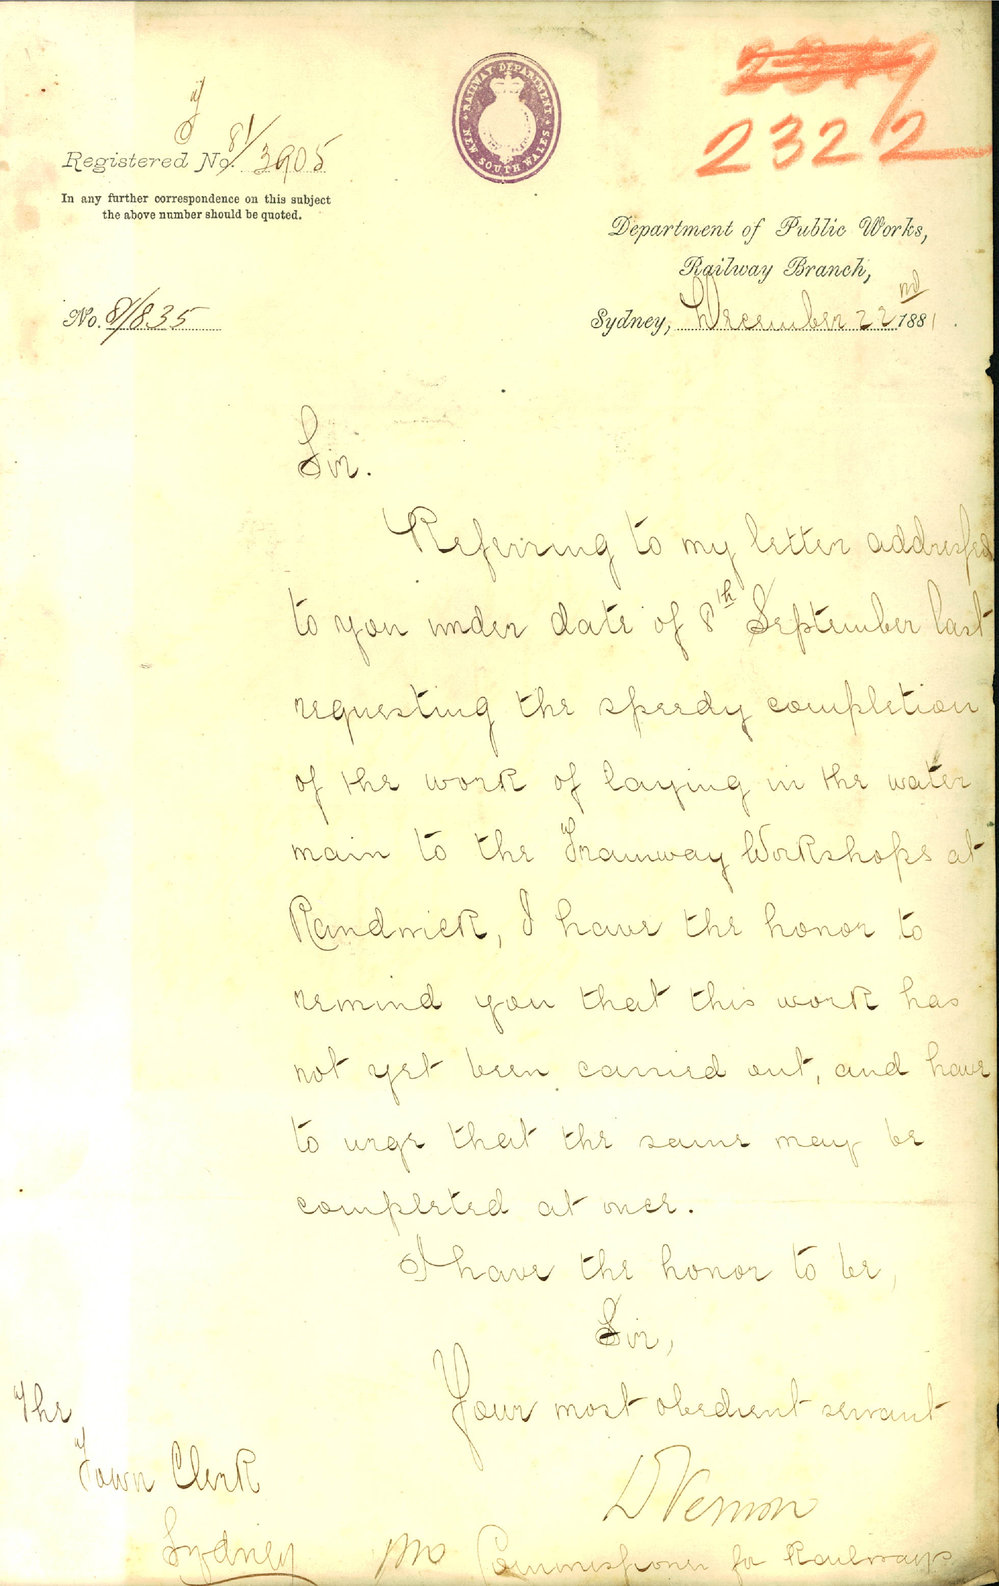 2322
T
Registered No. 81/3905
In any further correspondence on this subject
the above number should be quoted.
RAILWAY DEPARTMENT
NEW SOUTH WALES
Department of Public Works,
Railway Branch,
No. 81/835
Sydney, December 22nd 1881.
Sir.
Referring to my letter addressed
to you under date of 8th September last
requesting the speedy completion
of the work of laying in the water
main to the Tramway Workshops at
Randwick, I have the honor to
remind you that this work has
not yet been carried out, and have
to urge that the same may be
completed at once.
I have the honor to be,
Sir,
Your most obedient servant
D Vernon
Commissioner for Railways
The
Town Clerk
Sydney